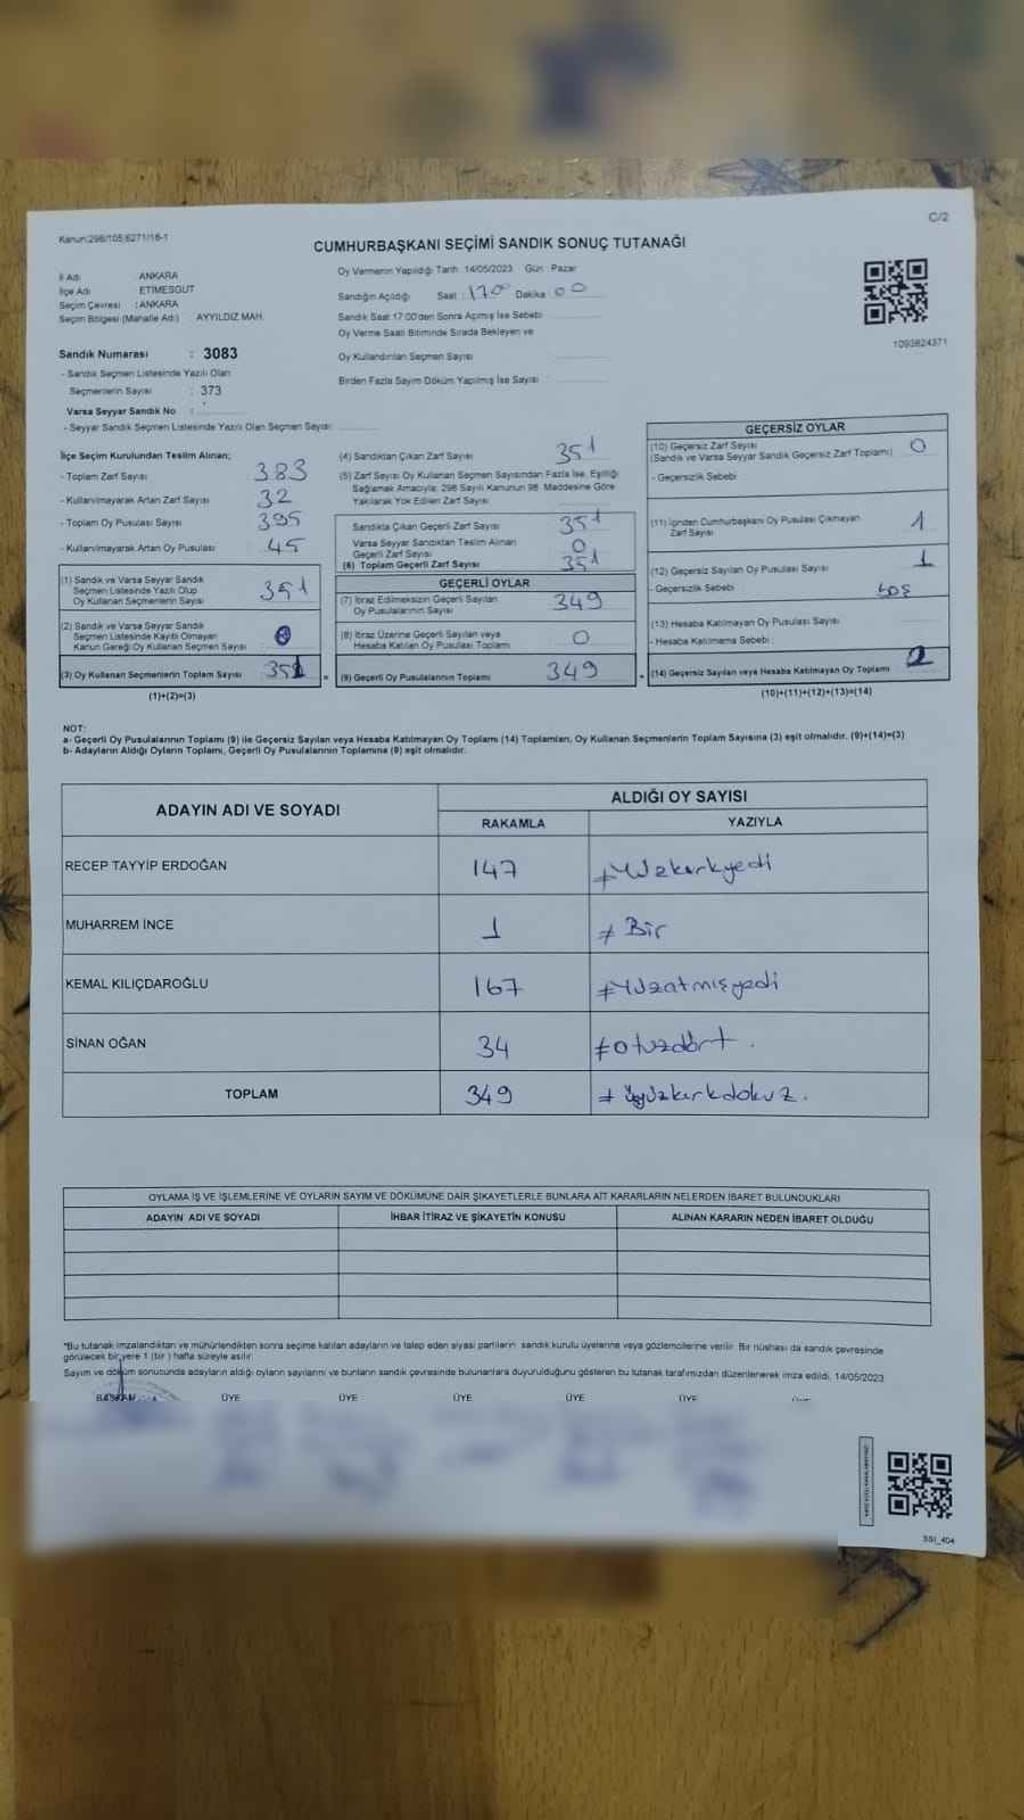 C/2
Kanun:298/105,6271/16-1
CUMHURBAŞKANI SEÇİMİ SANDIK SONUÇ TUTANAĞI
İl Adı ANKARA
İlçe Adı ETİMESGUT
Seçim Çevresi : ANKARA
Seçim Bölgesi (Mahalle Adı) AYYILDIZ MAH.
Sandık Numarası : 3083
- Sandık Seçmen Listesinde Yazılı Olan
Seçmenlerin Sayısı : 373
Varsa Seyyar Sandık No :
- Seyyar Sandık Seçmen Listesinde Yazılı Olan Seçmen Sayısı:
Oy Vermenin Yapıldığı Tarih: 14/05/2023 Gün: Pazar
Sandığın Açıldığı Saat : 1700 Dakika : 00
Sandık Saat 17:00'den Sonra Açılmış İse Sebebi
Oy Verme Saati Bitiminde Sırada Bekleyen ve
Oy Kullandırılan Seçmen Sayısı
Birden Fazla Sayım Döküm Yapılmış İse Sayısı
1093824371
İlçe Seçim Kurulundan Teslim Alınan;
- Toplam Zarf Sayısı 383
- Kullanılmayarak Artan Zarf Sayısı 32
- Toplam Oy Pusulası Sayısı 395
- Kullanılmayarak Artan Oy Pusulası 45
(1) Sandık ve Varsa Seyyar Sandık
Seçmen Listesinde Yazılı Olup
Oy Kullanan Seçmenlerin Sayısı 351
(2) Sandık ve Varsa Seyyar Sandık
Seçmen Listesinde Kaydı Olmayan
Kanun Gereği Oy Kullanan Seçmen Sayısı 0
(3) Oy Kullanan Seçmenlerin Toplam Sayısı 351
(1)+(2)=(3)
(4) Sandıktan Çıkan Zarf Sayısı 351
(5) Zarf Sayısı Oy Kullanan Seçmen Sayısından Fazla İse, Eşitliği
Sağlamak Amacıyla; 298 Sayılı Kanunun 98. Maddesine Göre
Yakılarak Yok Edilen Zarf Sayısı
Sandıkta Çıkan Geçerli Zarf Sayısı 351
Varsa Seyyar Sandıktan Teslim Alınan
Geçerli Zarf Sayısı 0
(6) Toplam Geçerli Zarf Sayısı 351
GEÇERLİ OYLAR
(7) İtiraz Edilmeksizin Geçerli Sayılan
Oy Pusulalarının Sayısı 349
(8) İtiraz Üzerine Geçerli Sayılan veya
Hesaba Katılan Oy Pusulası Toplamı 0
= (9) Geçerli Oy Pusulalarının Toplamı 349 +
GEÇERSİZ OYLAR
(10) Geçersiz Zarf Sayısı 0
(Sandık ve Varsa Seyyar Sandık Geçersiz Zarf Toplamı)
- Geçersizlik Sebebi
(11) İçinden Cumhurbaşkanı Oy Pusulası Çıkmayan
Zarf Sayısı 1
(12) Geçersiz Sayılan Oy Pusulası Sayısı 1
- Geçersizlik Sebebi boş
(13) Hesaba Katılmayan Oy Pusulası Sayısı
- Hesaba Katılmama Sebebi :
(14) Geçersiz Sayılan veya Hesaba Katılmayan Oy Toplamı 2
(10)+(11)+(12)+(13)=(14)
NOT:
a- Geçerli Oy Pusulalarının Toplamı (9) ile Geçersiz Sayılan veya Hesaba Katılmayan Oy Toplamı (14) Toplamları, Oy Kullanan Seçmenlerin Toplam Sayısına (3) eşit olmalıdır. (9)+(14)=(3)
b- Adayların Aldığı Oyların Toplamı, Geçerli Oy Pusulalarının Toplamına (9) eşit olmalıdır.
ADAYIN ADI VE SOYADI ALDIĞI OY SAYISI
RAKAMLA YAZIYLA
RECEP TAYYİP ERDOĞAN 147 ≠ Yüzkırkyedi
MUHARREM İNCE 1 ≠ Bir
KEMAL KILIÇDAROĞLU 167 ≠ Yüzatmışyedi
SİNAN OĞAN 34 ≠ otuzdört .
TOPLAM 349 ≠ üçyüzkırkdokuz .
OYLAMA İŞ VE İŞLEMLERİNE VE OYLARIN SAYIM VE DÖKÜMÜNE DAİR ŞİKAYETLERLE BUNLARA AİT KARARLARIN NELERDEN İBARET BULUNDUKLARI
ADAYIN ADI VE SOYADI İHBAR İTİRAZ VE ŞİKAYETİN KONUSU ALINAN KARARIN NEDEN İBARET OLDUĞU
*Bu tutanak imzalandıktan ve mühürlendikten sonra seçime katılan adayların ve talep eden siyasi partilerin sandık kurulu üyelerine veya gözlemcilerine verilir. Bir nüshası da sandık çevresinde
görülecek bir yere 1 (bir ) hafta süreyle asılır.
Sayım ve döküm sonucunda adayların aldığı oyların sayılarını ve bunların sandık çevresinde bulunanlara duyurulduğunu gösteren bu tutanak tarafımızdan düzenlenerek imza edildi. 14/05/2023
BAŞKAN ÜYE ÜYE ÜYE ÜYE ÜYE
SSI_404